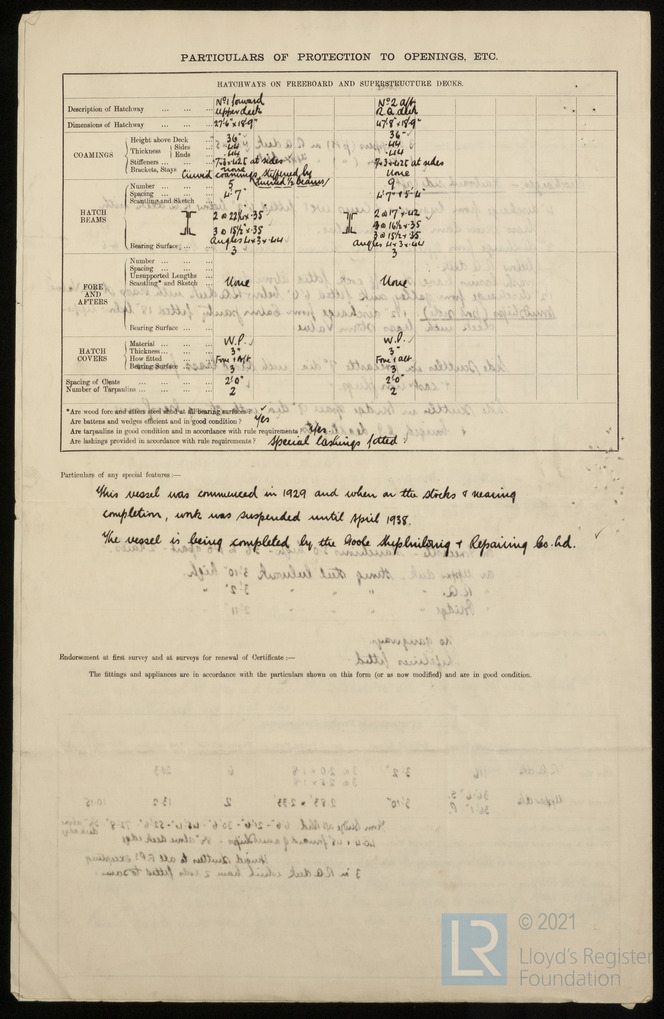 PARTICULARS OF PROTECTION TO OPENINGS, ETC.
HATCHWAYS ON FREEBOARD AND SUPERSTRUCTURE DECKS.
Description of Hatchway ... ... ... No 1 forward Upper deck No 2 aft R.Q. deck
Dimensions of Hatchway ... ... 27'6" x 18'9" 47'8" x 18'9"
COAMINGS
Height above Deck ... 36" 36"
Thickness Sides ... .44 .44
Ends ... .44 .44
Stiffeners ... ... 7x3x.425 at sides 7x3x.425 at sides
Brackets, Stays ... None None
Curved coamings stiffened by
HATCH BEAMS
Number ... ... ... 5 9
Spacing ... ... ... 4'7" 4'7" & 5'4"
Scantling and Sketch
2 @ .35 2 @ 17" x .42
3 @ 15½" x .35 3 @ 16½ x .35
3 @ 15½ x .35
Angles 4x3x.44 Angles 4x3x.44
Bearing Surface ... ... 3 3
FORE AND AFTERS
Number ... ... ...
Spacing ... ... ...
Unsupported Lengths ...
Scantling* and Sketch None None
Bearing Surface ... ...
HATCH COVERS
Material ... ... ... W.P. W.P.
Thickness ... ... ... 3" 3"
How fitted ... ... Fore & Aft Fore & aft
Bearing Surface ... ... 3 3
Spacing of Cleats ... ... ... ... 2'0" 2'0"
Number of Tarpaulins ... ... ... 2 2
*Are wood fore and afters steel shod at all bearing surfaces?
Are battens and wedges efficient and in good condition? Yes
Are tarpaulins in good condition and in accordance with rule requirements? Yes
Are lashings provided in accordance with rule requirements? Special lashings fitted
Particulars of any special features:—
This vessel was commenced in 1929 and when on the stocks & nearing
completion, work was suspended until April 1938.
The vessel is being completed by the Goole Shipbuilding & Repairing Co. Ld.
Endorsement at first survey and at surveys for renewal of Certificate:—
The fittings and appliances are in accordance with the particulars shown on this form (or as now modified) and are in good condition.
LR
© 2021
Lloyd's Register
Foundation